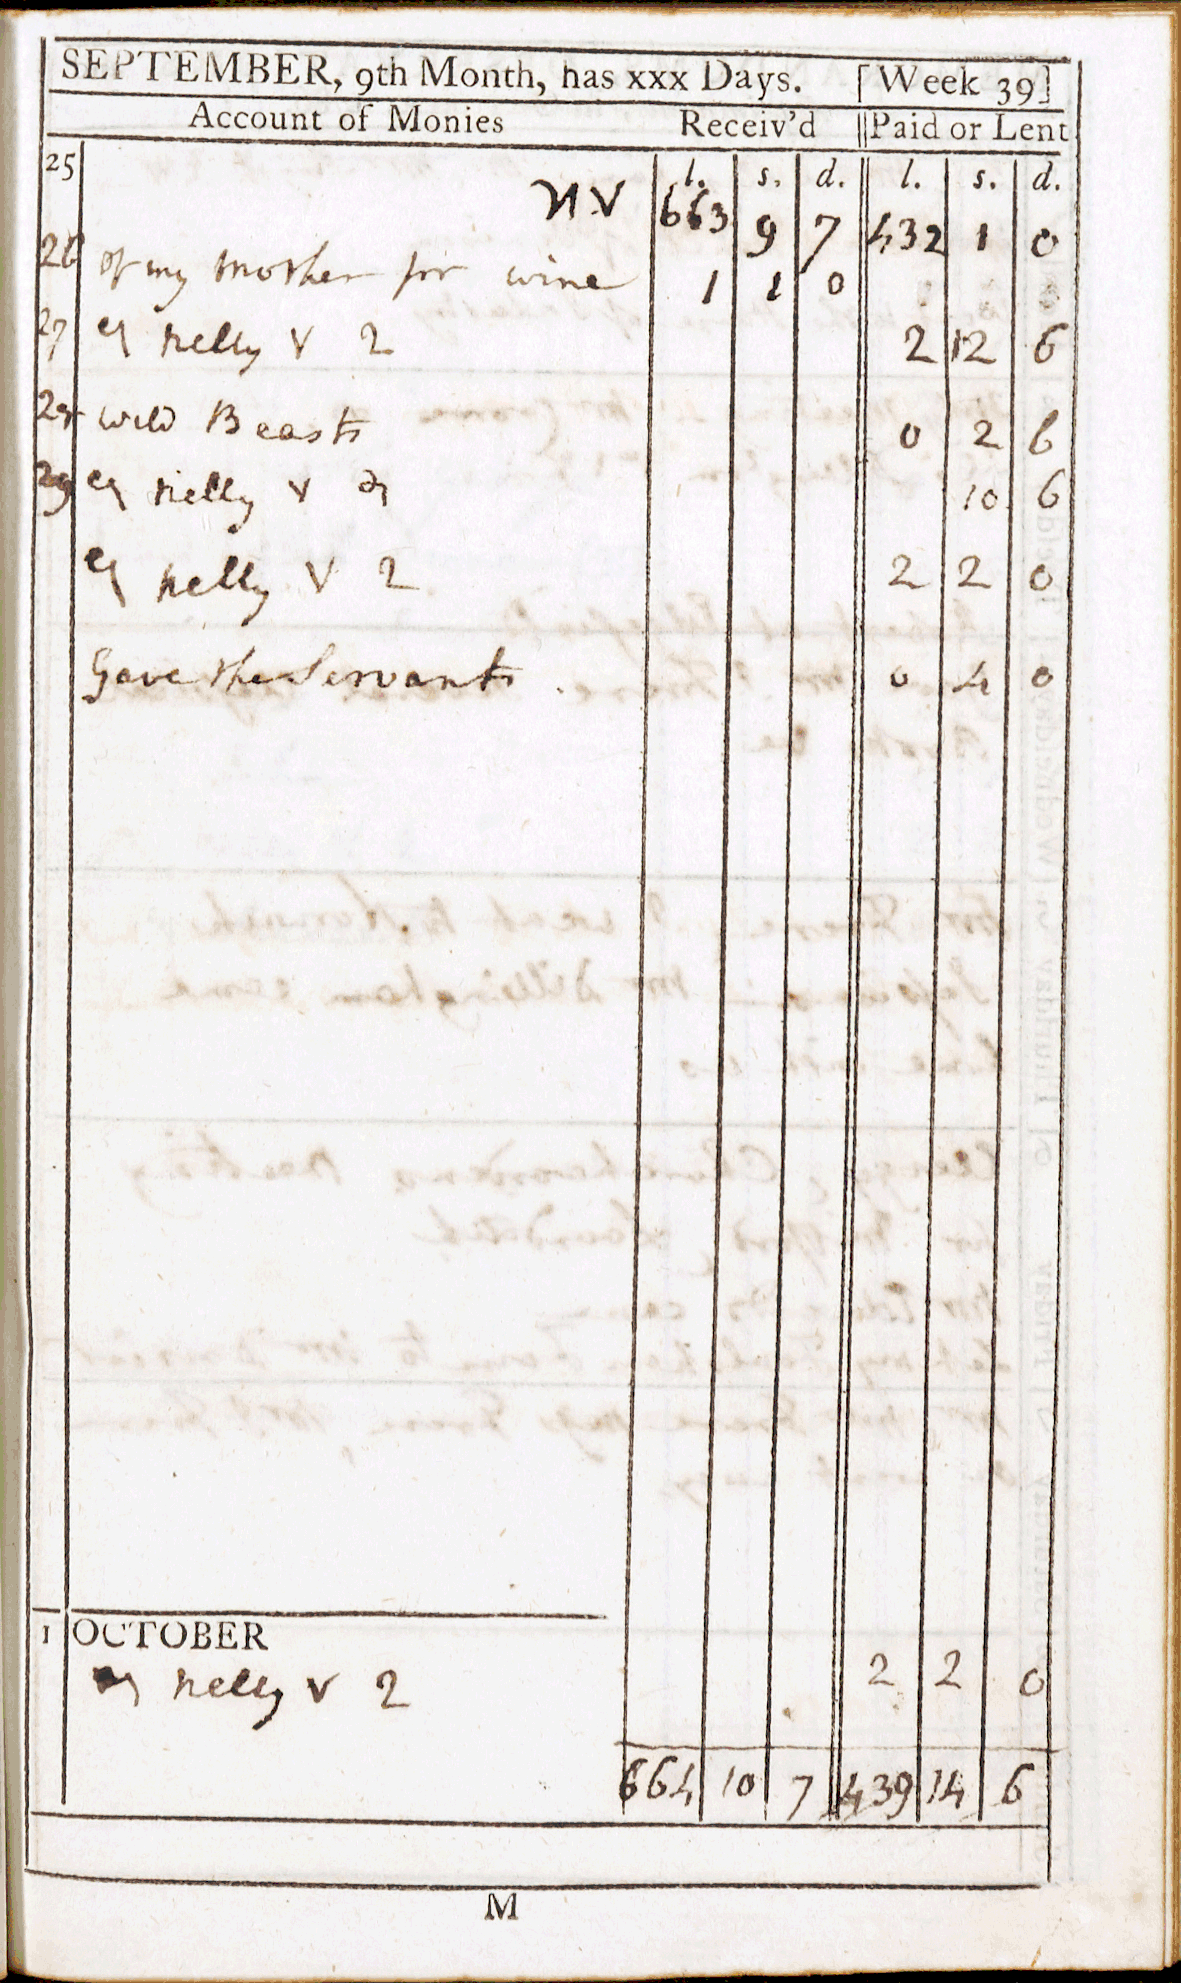 SEPTEMBER, 9th Month, has xxx Days. [Week 39]
Account of Monies Receiv'd Paid or Lent
25 l. s. d. l. s. d.
663 9 7 432 1 0
26 of my Mother for wine 1 1 0
27 Nelly v 2 2 12 6
28 Wild Beasts 0 2 6
29 Nelly v 10 6
Nelly v 2 2 2 0
Gave the Servants 0 4 0
1 OCTOBER
Nelly v 2 2 2 0
664 10 7 439 14 6
M